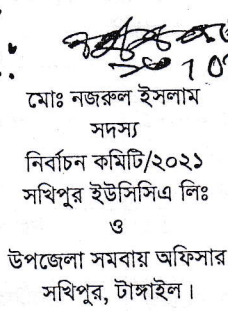 মোঃ নজরুল ইসলাম
সদস্য
নির্বাচন কমিটি/২০২১
সখিপুর ইউসিসিএ লিঃ
ও
উপজেলা সমবায় অফিসার
সখিপুর, টাঙ্গাইল।